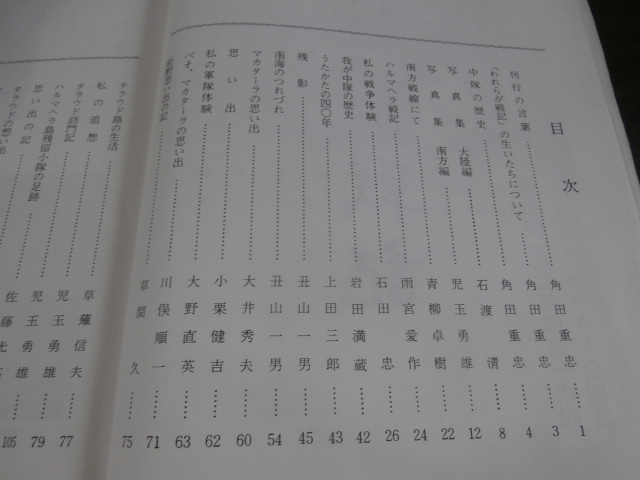 目次
刊行の言葉…………角田重忠……1
「われらが戦記」の生いたちについて…………角田重忠……3
中隊の歴史…………角田重忠……4
写真集 大陸編…………石渡清……8
写真集 南方編…………児玉勇雄……12
南方戦線にて…………青柳卓樹……22
ハルマヘラ戦記…………雨宮愛作……24
私の戦争体験…………石田忠……26
我が中隊の歴史…………岩田満蔵……42
うたかたの四〇年…………上田三郎……43
残影…………丑山一男……45
南海のつれづれ…………丑山一男……54
マカターラの思い出…………大井秀夫……60
思い出…………小栗健吉……62
私の軍隊体験…………大野直英……63
ベオ、マカターラの思い出…………川俣順一……71
思い出の記…………草間久……75
タラウド島の生活…………草薙信夫……77
私の追想…………児玉勇雄……79
タラウド訪門記…………児玉勇雄
ハルマヘラ島残留小隊の足跡…………佐藤光……105
思い出の記
タラウドの思い出